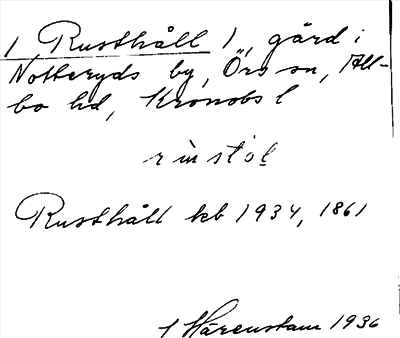 1 Rusthåll 1, gård i
Notteryds by, Örs sn, All-
bo hd, Kronobs l
Rusthåll kb 1934, 1861
Härenstam 1936